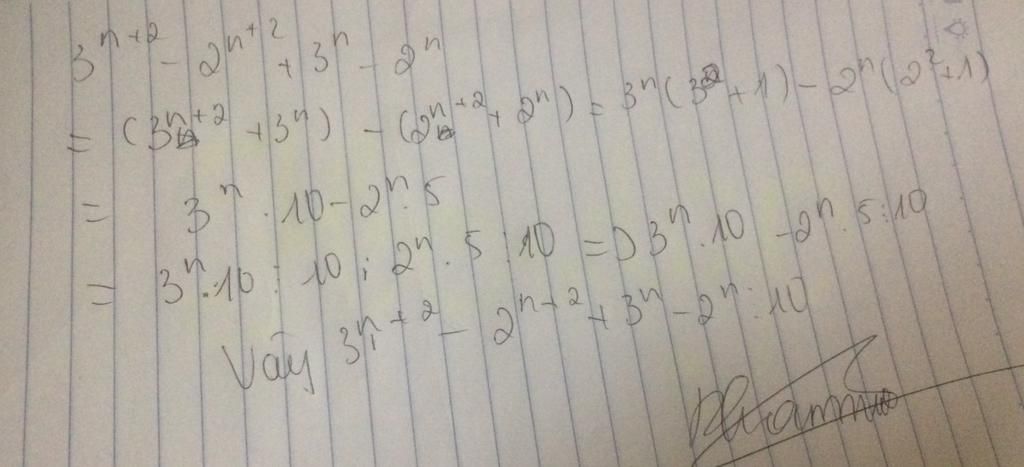 3^{n+2} - 2^{n+2} + 3^n - 2^n
= (3^{n+2} + 3^n) - (2^{n+2} + 2^n) = 3^n(3^2 + 1) - 2^n(2^2 + 1)
= 3^n . 10 - 2^n . 5
= 3^n . 10 ⋮ 10 ; 2^n . 5 ⋮ 10 => 3^n . 10 - 2^n . 5 ⋮ 10
Vây 3^{n+2} - 2^{n+2} + 3^n - 2^n ⋮ 10